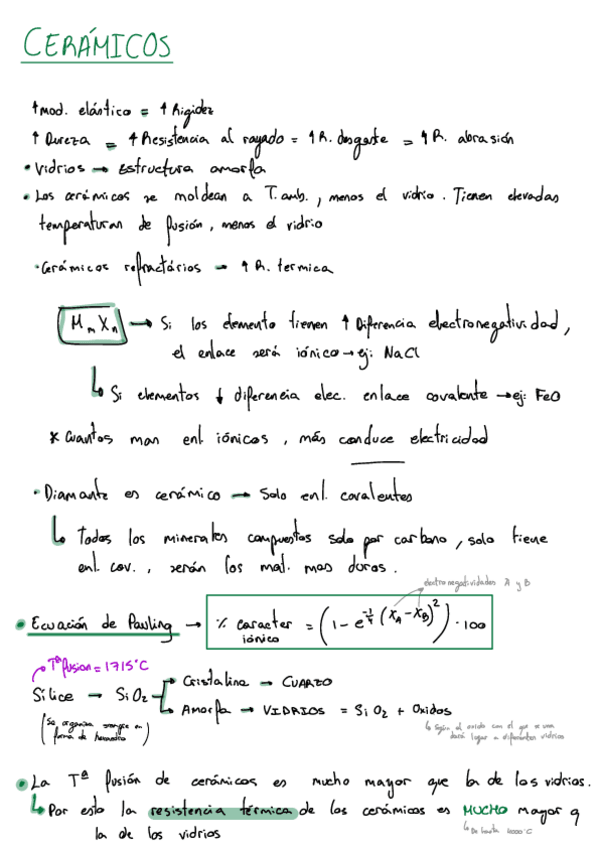 CERÁMICOS
↑ Mod. elástico = ↑ Rigidez
↑ Dureza = ↑ Resistencia al rayado = ↑ R. desgaste = ↑ R. abrasión
• Vidrios → Estructura amorfa
• Los cerámicos se moldean a T. amb., menos el vidrio. Tienen elevadas
temperaturas de fusión, menos el vidrio
• Cerámicos refractários → ↑ R. termica
MmXn → Si los elemento tienen ↑ Diferencia electronegatividad,
el enlace será iónico → ej: NaCl
↳ Si elementos ↓ diferencia elec. enlace covalente → ej: FeO
* Cuantos mas enl. iónicos, más conduce electricidad
• Diamante es cerámico → Solo enl. covalentes
↳ Todos los minerales compuestos solo por carbono, solo tiene
enl. cov., serán los mat. mas duros.
electronegatividades A y B
• Ecuación de Pauling → % caracter iónico = (1 - e^(-1/4 (XA - XB)^2)) · 100
Tª fusion = 1715°C
Sílice → SiO2 → Cristalina → CUARZO
→ Amorfa → VIDRIOS = SiO2 + Oxidos
(Se organiza siempre en
forma de tetraedro)
↳ Según el oxido con el que se una
dará lugar a diferentes vidrios
• La Tª fusión de cerámicos es mucho mayor que la de los vidrios.
↳ Por esto la resistencia térmica de los cerámicos es MUCHO mayor q
la de los vidrios
↳ De hasta 4000°C